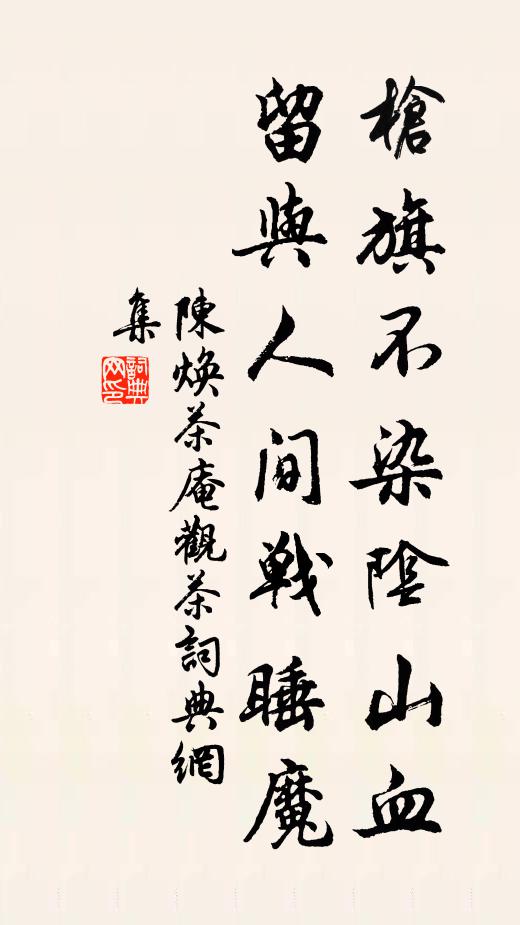 槍旗不染陰山血
留與人间戰睡魔
陳煥茶庵觀茶詞典網
集
詞典
网印